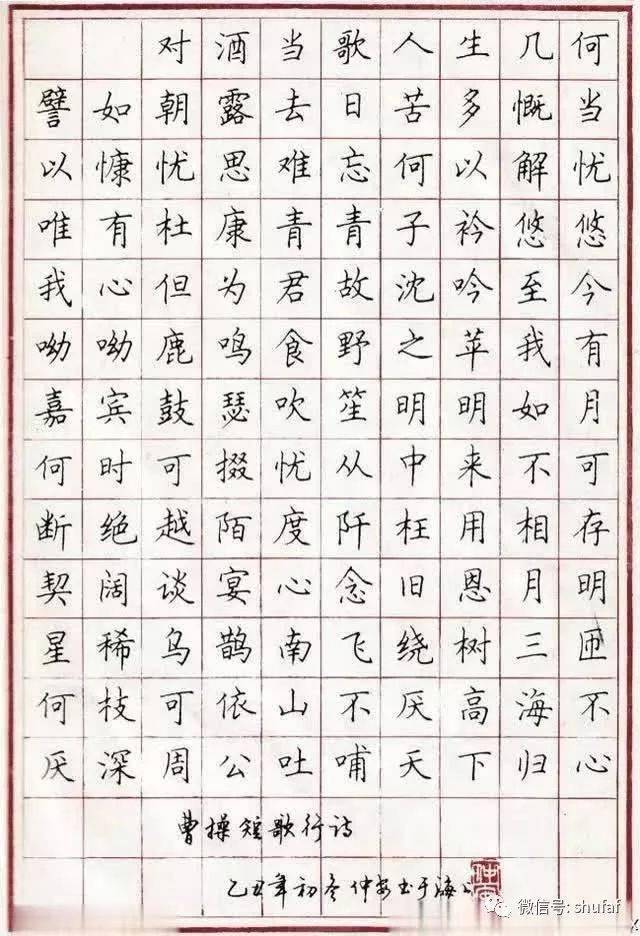 对酒当歌人生几何
譬如朝露去日苦多慨当
以慷忧思难忘何以解忧
唯有杜康青青子衿悠悠
我心但为君故沈吟至今
呦呦鹿鸣食野之苹我有
嘉宾鼓瑟吹笙明明如月
何时可掇忧从中来不可
断绝越陌度阡枉用相存
契阔谈宴心念旧恩月明
星稀乌鹊南飞绕树三匝
何枝可依山不厌高海不
厌深周公吐哺天下归心
曹操短歌行诗
乙丑年初冬仲安书于海上
微信号: shufaf